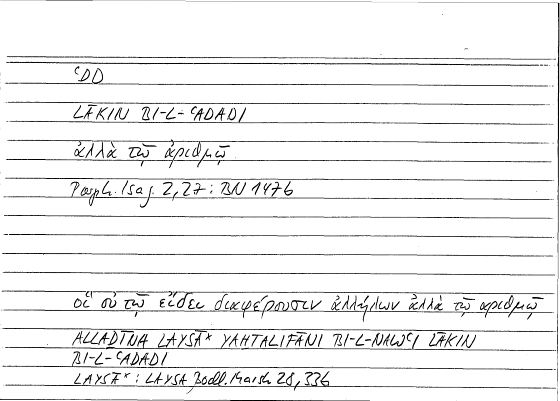 ʿDD
LĀKIN BI-L-ʿADADI
ἀλλὰ τῷ ἀριθμῷ
Porph. Isag. 2,27 : BN 147b
οἳ οὐ τῷ εἴδει διαφέρουσιν ἀλλήλων ἀλλὰ τῷ ἀριθμῷ
ALLAḎĪNA LAYSĀ* YAHTALIFĀNI BI-L-NAWʿI LĀKIN
BI-L-ʿADADI
LAYSĀ* : LAYSA Bodl. Marsh 28, 336